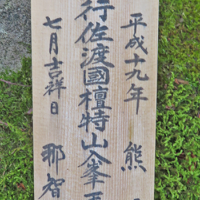 平成十九年 熊
行佐渡國檀特山入峯
七月吉祥日 那智